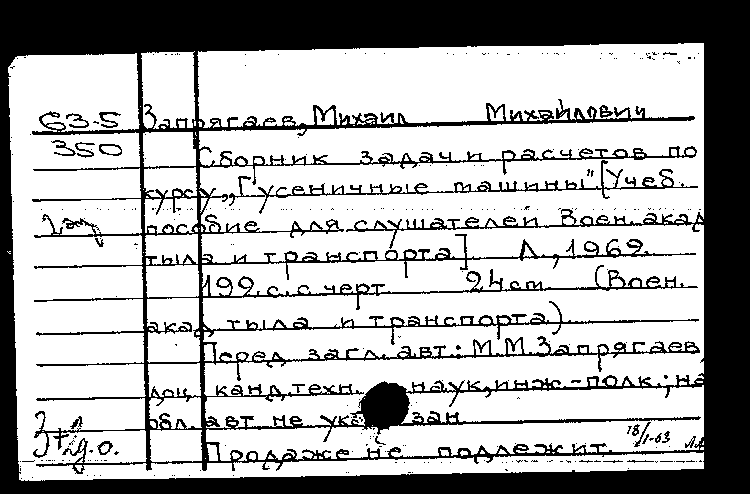 63-5 Запрягаев, Михаил Михайлович
350 Сборник задач и расчетов по
курсу „Гусеничные машины". [Учеб.
2 эк
пособие для слушателей Воен. акад
тыла и транспорта] Л., 1962.
199 с. с черт 24 см (Воен.
акад тыла и транспорта)
Перед загл. авт.: М.М. Запрягаев,
доц., канд. техн. наук, инж.-полк.; на
обл. авт не указан
3+2д.о.
Продаже не подлежит. 18/I-63